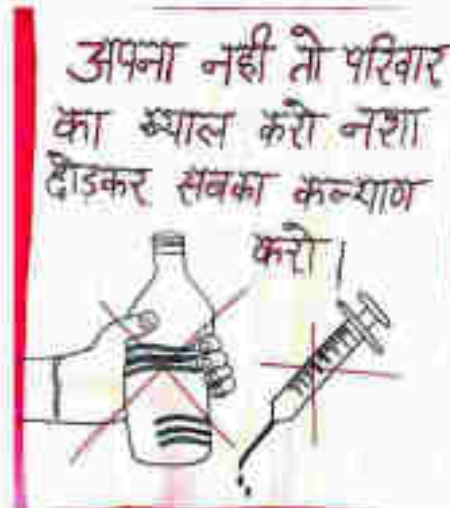 अपना नही तो परिवार
का ख्याल करो नशा
छोड़कर सबका कल्याण
करो।